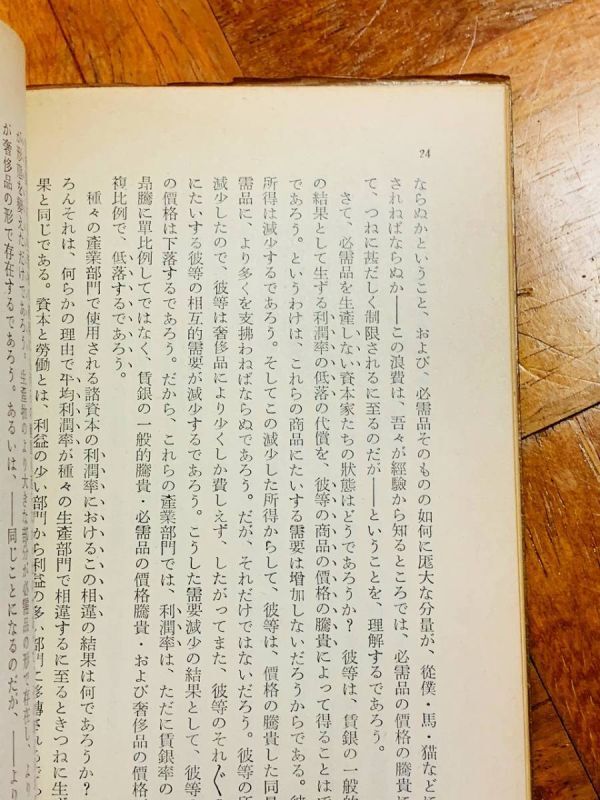 24
ならぬかということ、および、必需品そのものの如何に厖大な分量が、從僕・馬・猫など
されねばならぬか——この浪費は、吾々が經驗から知るところでは、必需品の價格の騰貴に
て、つねに甚だしく制限されるに至るのだが——ということを、理解するであろう。
さて、必需品を生產しない資本家たちの狀態はどうであろうか? 彼等は、賃銀の一般的
の結果として生ずる利潤率の低落の代償を、彼等の商品の價格の騰貴によって得ることはで
であろう。というわけは、これらの商品にたいする需要は增加しないだろうからである。彼
所得は減少するであろう。そしてこの減少した所得からして、彼等は、價格の騰貴した同量
需品に、より多くを支拂わねばならぬであろう。だが、それだけではないだろう。彼等の所
減少したので、彼等は奢侈品により少くしか費しえず、したがってまた、彼等のそれ〴〵の
にたいする彼等の相互的需要が減少するであろう。こうした需要減少の結果として、彼等
の價格は下落するであろう。だから、これらの產業部門では、利潤率は、ただに賃銀率の
昻騰に單比例してではなく、賃銀の一般的騰貴・必需品の價格騰貴・および奢侈品の價格
複比例で、低落するであろう。
種々の產業部門で使用される諸資本の利潤率におけるこの相違の結果は何であろうか?
ろんそれは、何らかの理由で平均利潤率が種々の生產部門で相違するに至るときつねに生
果と同じである。資本と勞働とは、利益の少い部門から利益の多い部門に移轉されるで
が形態を變えただけであろう。生產物のより大きな部分が必需品の形で存在し、より
が奢侈品の形で存在するであろう。あるいは、——同じことになるのだが、——より